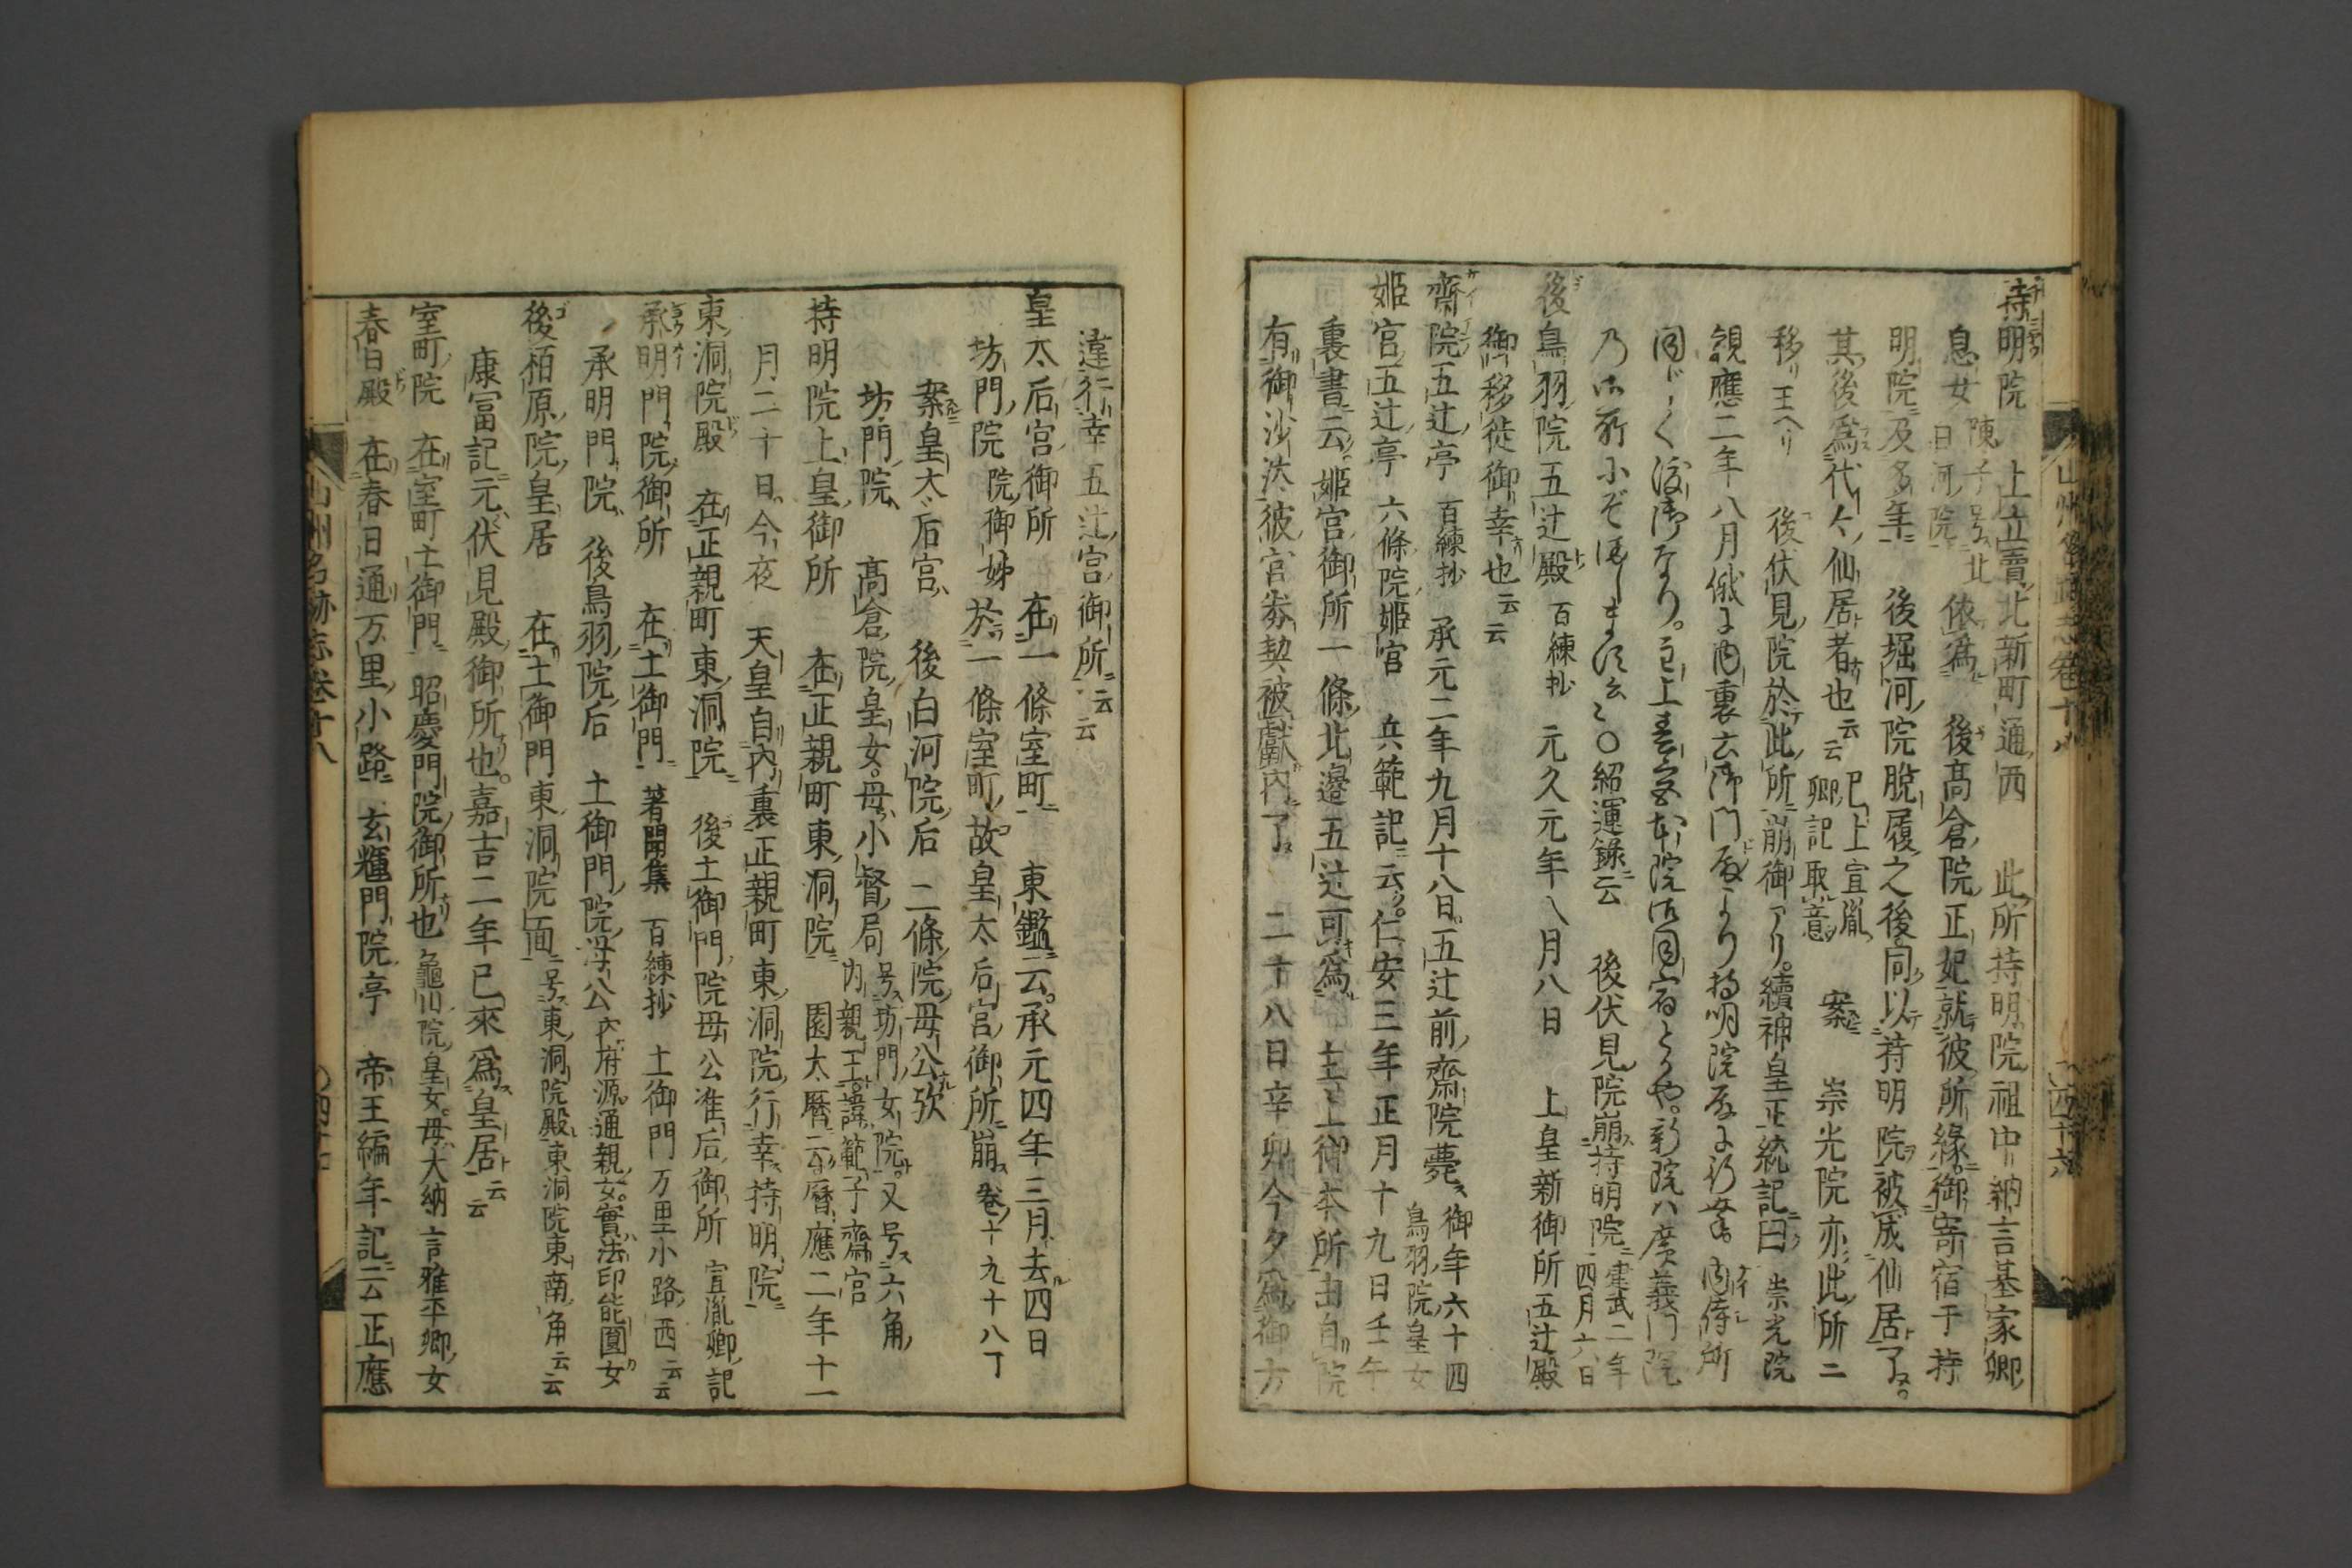 持明院　上立賣北新町通西　此所持明院祖中納言基家卿
息女　陳子号北日河院　依爲　後高倉院正妃就彼所緣御寄宿于持
明院及多年　後堀河院脫履之後同以持明院被成仙居了
其後爲代々仙居者也云云　已上宣胤卿記取意　案　崇光院亦此所ニ
移リ玉ヘリ　後伏見院於此所崩御アリ續神皇正統記曰　崇光院
観應二年八月俄に内裏
後伏見院崩持明院　建武二年四月六日　〇紹運錄云
後鳥羽院五辻殿　百練抄　元久元年八月八日　上皇新御所五辻殿
御移徙御幸也云云
齋院五辻亭　百練抄　承元二年九月十八日五辻前齋院薨　御年六十四鳥羽院皇女
姫宮五辻亭　六條院姫宮　兵範記云仁安三年正月十九日壬午
裏書云姫宮御所一條北邊五辻可爲　上御本所由自院
有御沙汰彼宮劵契被獻内了　二十八日辛卯今夕爲御方
違行幸五辻宮御所云云
皇太后宮御所　在一條室町　東鑑云承元四年三月去四日
坊門院　院御姊　於一條室町故皇太后宮御所崩　卷十九十八丁
案皇太后宮　後白河院后　二條院母公歟
坊門院　高倉院皇女母小督局　号坊門女院又号六角内親王諱範子齋宮
持明院上皇御所　在正親町東洞院　園太曆云曆應二年十一
月二十日今夜　天皇自内裏正親町東洞院行幸持明院
東洞院殿　在正親町東洞院　後土御門院母公准后御所　宣胤卿記
承明門院御所　在土御門　著聞集　百練抄　土御門万里小路西云云
承明門院　後鳥羽院后　土御門院母公　内府源通親女實法印能圓女
後柏原院皇居　在土御門東洞院面　号東洞院殿東洞院東南角云云
康富記元伏見殿御所也嘉吉二年已來爲皇居云云
室町院　在室町土御門　昭慶門院御所也　龜山院皇女母大納言雅平卿女
春日殿　在春日通万里小路　玄輝門院亭　帝王編年記云正應
山州名跡志卷十八